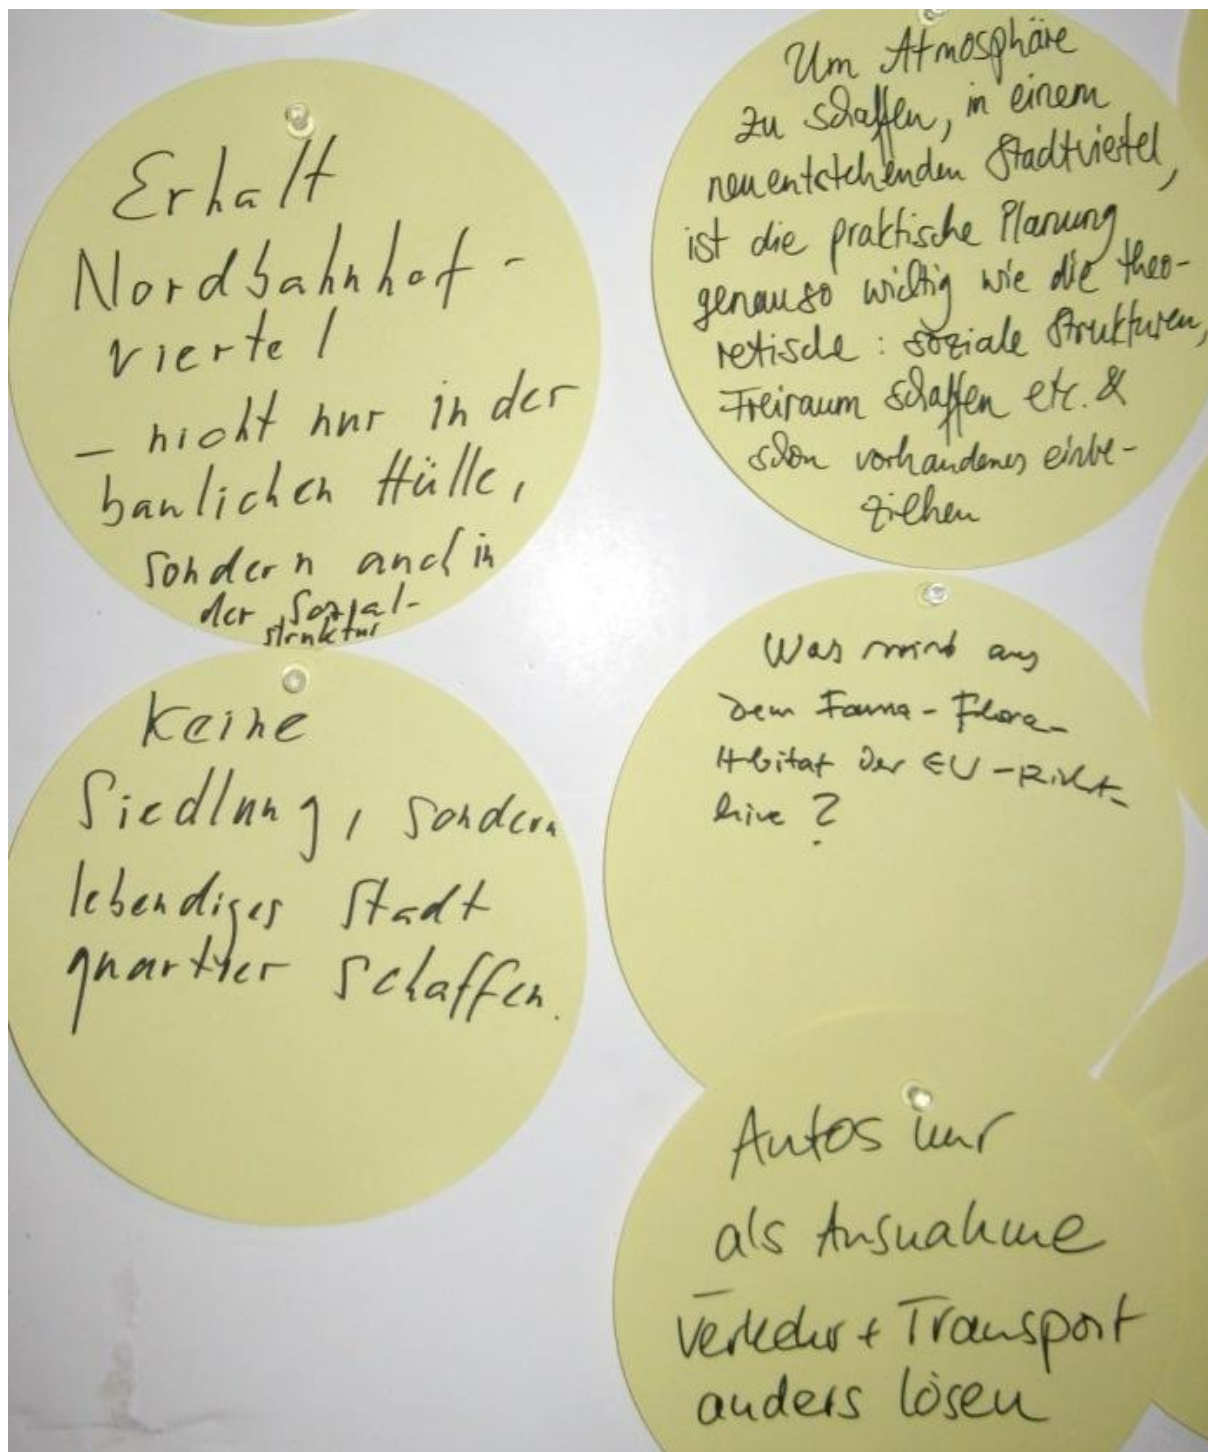 Erhalt
Nordbahnhof-
viertel
– nicht nur in der
baulichen Hülle,
sondern auch in
der Sozial-
struktur
Keine
Siedlung, sondern
lebendiges Stadt
quartier schaffen.
Um Atmosphäre
zu schaffen, in einem
neuentstehenden Stadtviertel,
ist die praktische Planung
genauso wichtig wie die theo-
retische: soziale Strukturen,
Freiraum schaffen etc. &
schon vorhandenes einbe-
ziehen
Was wird aus
dem Fauna-Flora-
Hbitat der EU-Richt-
linie?
Autos nur
als Ausnahme
–
Verkehr + Transport
anders lösen